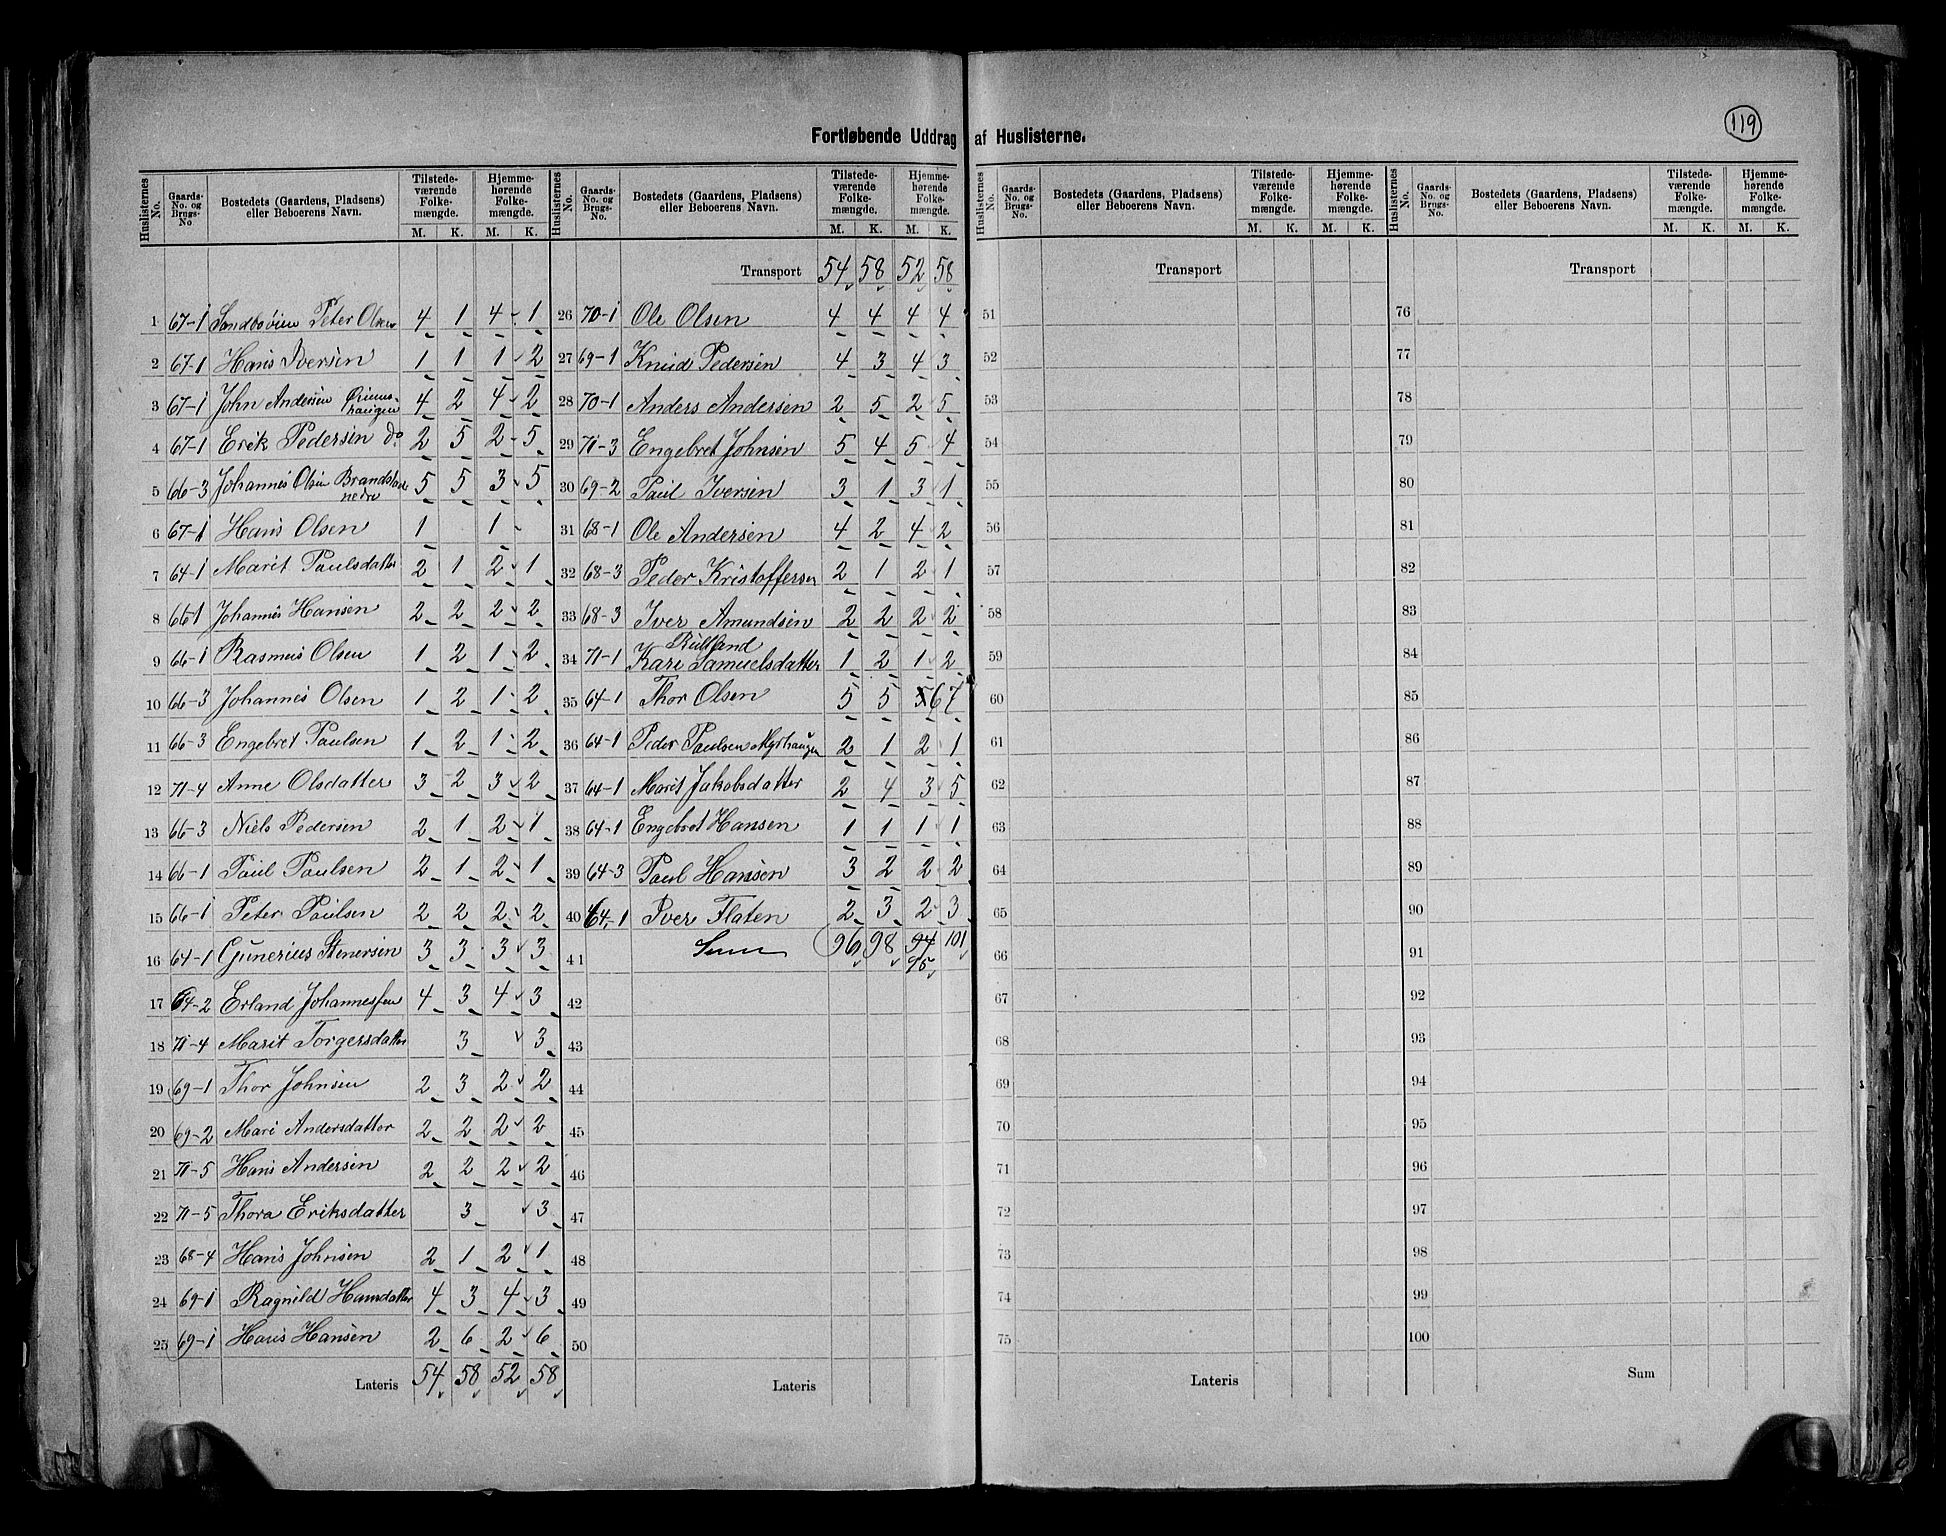 119
Fortløbende Uddrag af Huslisterne.
Huslisternes No. | Gaards-No. og Brugs-No | Bostedets (Gaardens, Pladsens) eller Beboerens Navn. | Tilstedeværende Folkemængde. M. K. | Hjemmehørende Folkemængde. M. K.
1 67-1 Sandbovien Peter Olsen 4 1 4 1
2 67-1 Hans Iversen 1 1 1 2
3 67-1 John Andersen 4 2 4 2
4 67-1 Erik Pedersen do 2 5 2 5
5 66-3 Johannes Olsen nedre 5 5 3 5
6 67-1 Hans Olsen 1 1
7 64-1 Marit Paulsdatter 2 1 2 1
8 66-1 Johannes Hansen 2 2 2 2
9 66-1 Rasmus Olsen 1 2 1 2
10 66-3 Johannes Olsen 1 2 1 2
11 66-3 Engebret Paulsen 1 2 1 2
12 71-4 Anne Olsdatter 3 2 3 2
13 66-3 Niels Pedersen 2 1 2 1
14 66-1 Paul Paulsen 2 1 2 1
15 66-1 Peter Paulsen 2 2 2 2
16 64-1 Gunerius Stenersen 3 3 3 3
17 64-2 Erland Johannessen 4 3 4 3
18 71-4 Marit Torgersdatter 3 3
19 69-1 Thor Johnsen 2 3 2 2
20 69-2 Mari Andersdatter 2 2 2 2
21 71-5 Hans Andersen 2 2 2 2
22 71-5 Thora Eriksdatter 3 3
23 68-4 Hans Johnsen 2 1 2 1
24 69-1 Ragnild Hansdatter 4 3 4 3
25 69-1 Hans Hansen 2 6 2 6
Lateris 54 58 52 58
Huslisternes No. | Gaards-No. og Brugs-No. | Bostedets (Gaardens, Pladsens) eller Beboerens Navn. | Tilstedeværende Folkemængde. M. K. | Hjemmehørende Folkemængde. M. K.
Transport 54 58 52 58
26 70-1 Ole Olsen 4 4 4 4
27 69-1 Knud Pedersen 4 3 4 3
28 70-1 Anders Andersen 2 5 2 5
29 71-3 Engebret Johnsen 5 4 5 4
30 69-2 Paul Iversen 3 1 3 1
31 68-1 Ole Andersen 4 2 4 2
32 68-3 Peder Kristoffersen 2 1 2 1
33 68-3 Iver Amundsen 2 2 2 2
34 71-1 Kari Samuelsdatter 1 2 1 2
35 64-1 Thor Olsen 5 5 5 6 7
36 64-1 Peder Paulsen Myrhaugen 2 1 2 1
37 64-1 Marit Jakobsdatter 2 4 3 5
38 64-1 Engebret Hansen 1 1 1 1
39 64-3 Paul Hansen 3 2 2 2
40 64,1 Iver Flaten 2 3 2 3
41 Sum 96 98 94 101
95
42
43
44
45
46
47
48
49
50
Lateris
Huslisternes No. | Gaards-No. og Brugs-No. | Bostedets (Gaardens, Pladsens) eller Beboerens Navn. | Tilstedeværende Folkemængde. M. K. | Hjemmehørende Folkemængde. M. K.
Transport
51
52
53
54
55
56
57
58
59
60
61
62
63
64
65
66
67
68
69
70
71
72
73
74
75
Lateris
Huslisternes No. | Gaards-No. og Brugs-No. | Bostedets (Gaardens, Pladsens) eller Beboerens Navn. | Tilstedeværende Folkemængde. M. K. | Hjemmehørende Folkemængde. M. K.
Transport
76
77
78
79
80
81
82
83
84
85
86
87
88
89
90
91
92
93
94
95
96
97
98
99
100
Sum